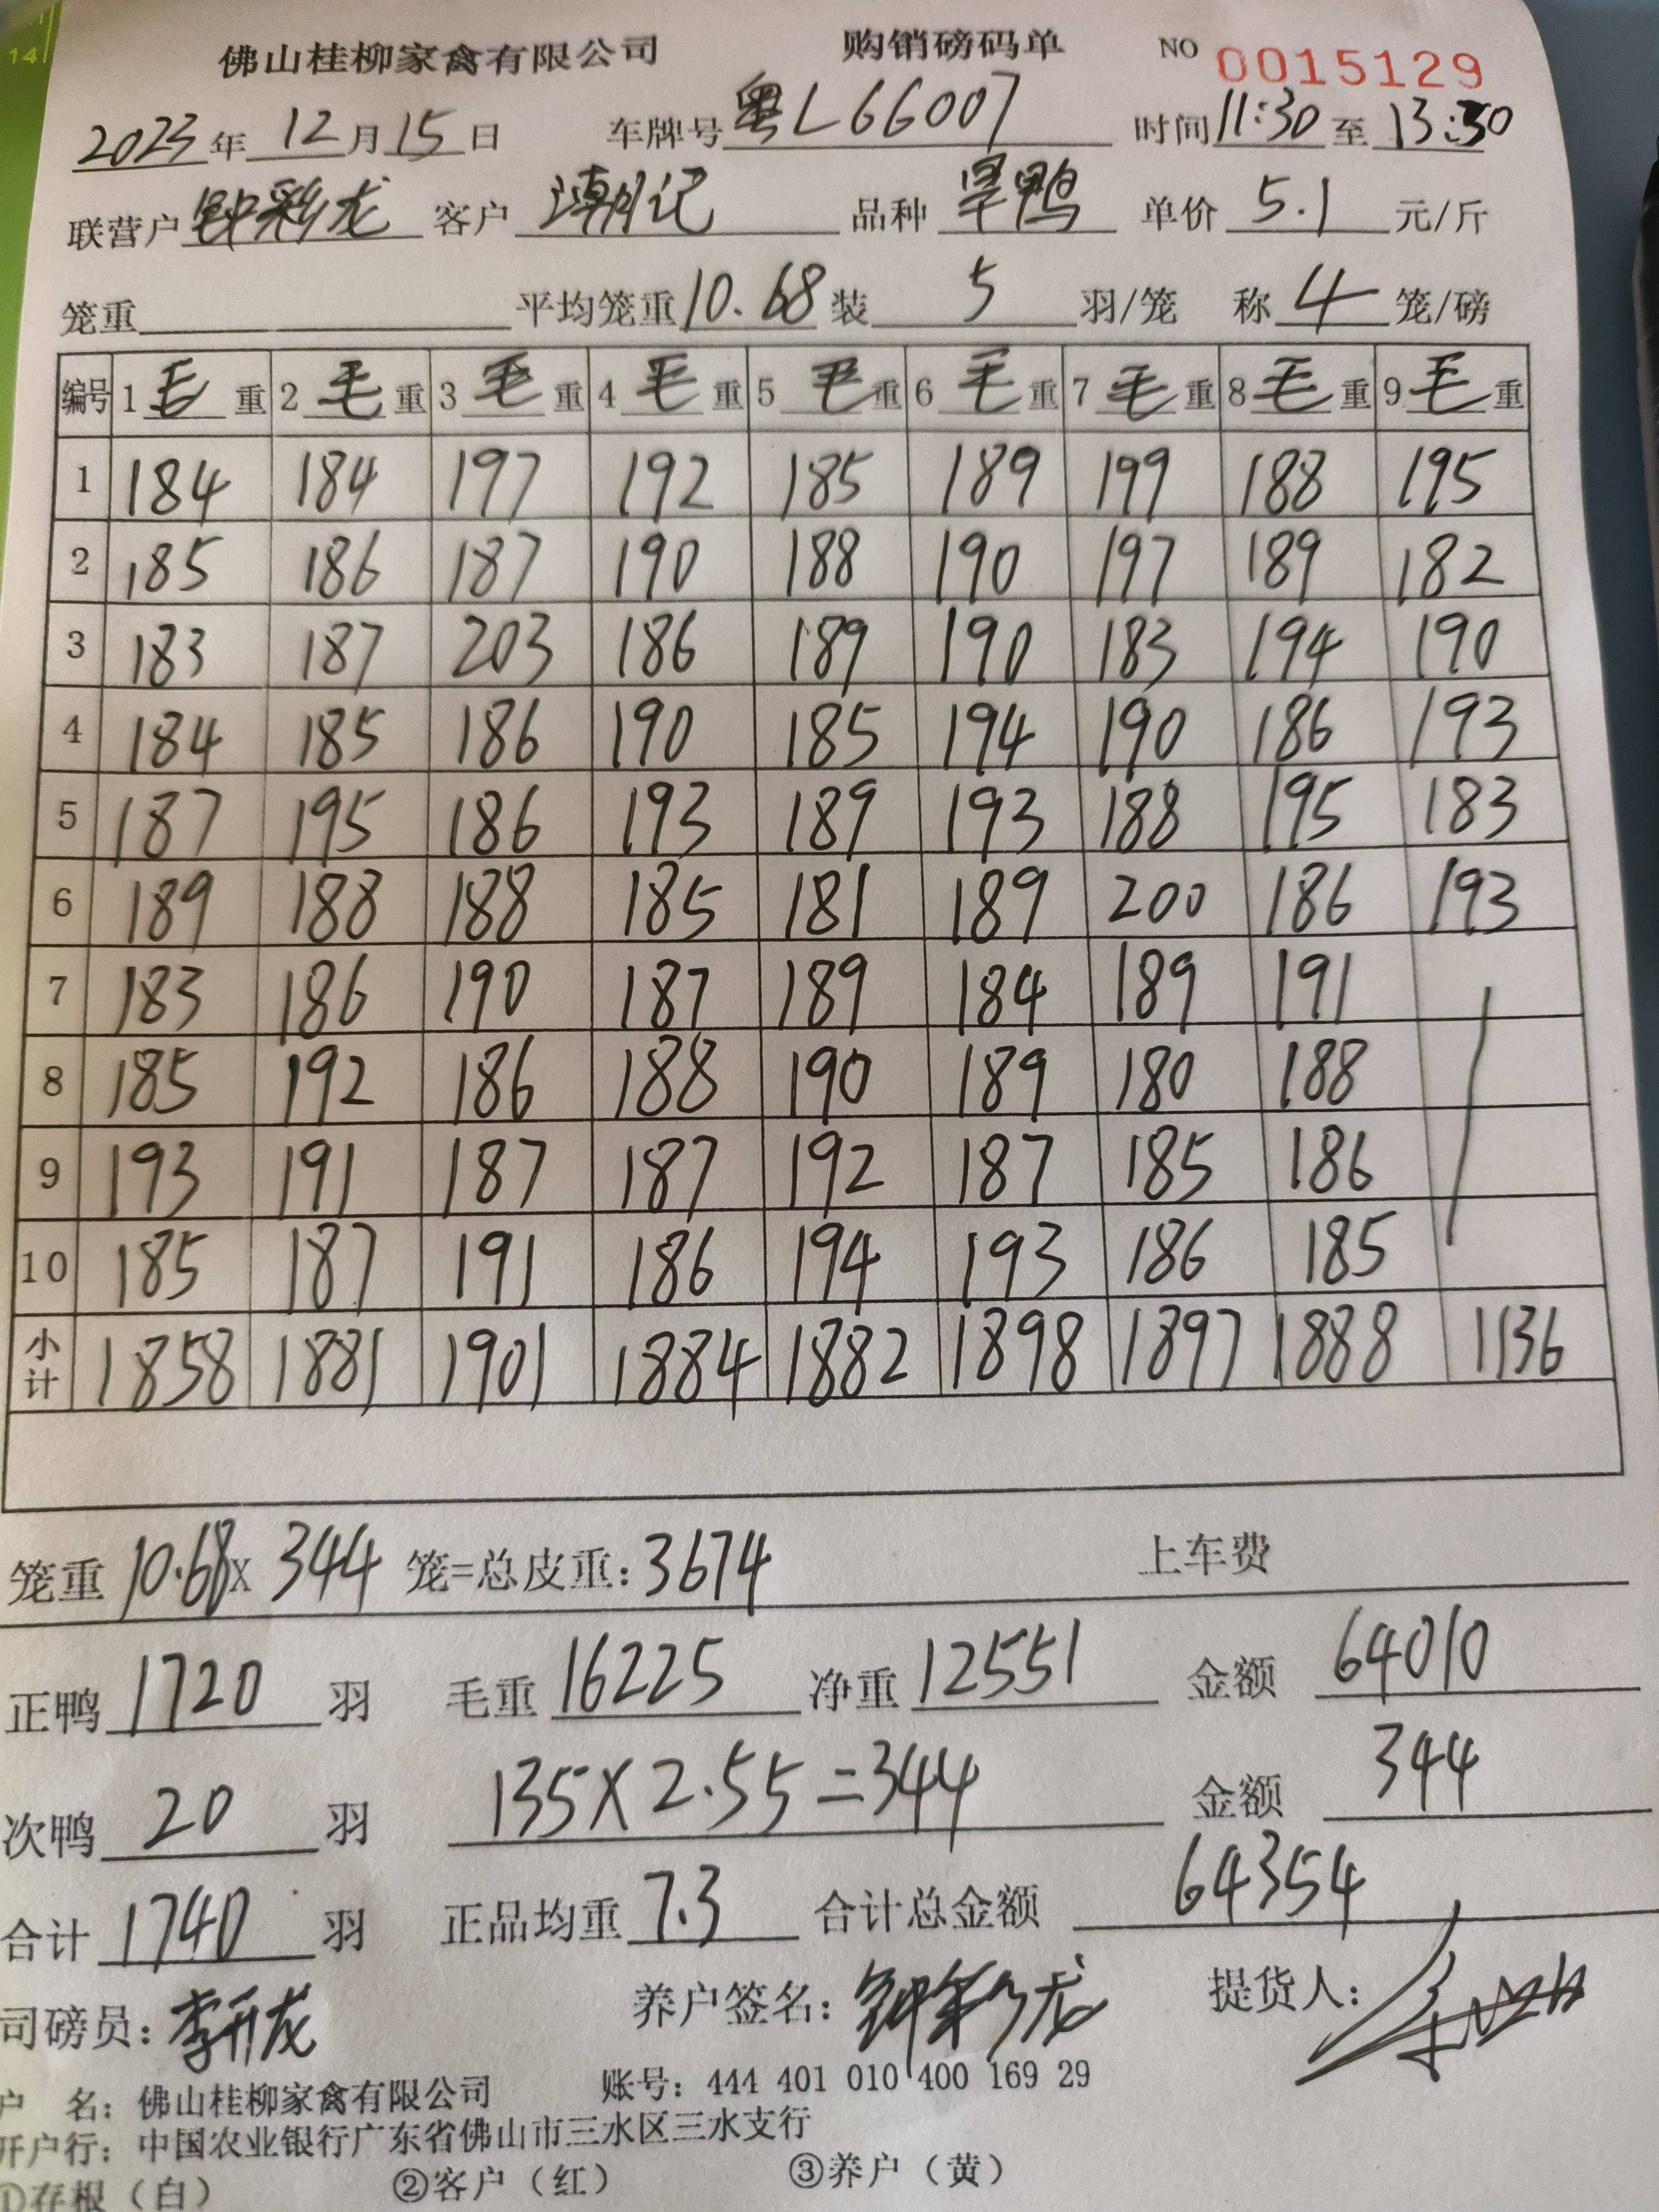 14
佛山桂柳家禽有限公司 购销磅码单 NO 0015129
2023年12月15日 车牌号粤L66007 时间11:30至13:30
联营户钟彩龙 客户潮记 品种旱鸭 单价5.1元/斤
笼重 平均笼重10.68装5羽/笼 称4笼/磅
编号 1毛重 2毛重 3毛重 4毛重 5毛重 6毛重 7毛重 8毛重 9毛重
1 184 184 197 192 185 189 199 188 195
2 185 186 187 190 188 190 197 189 182
3 183 187 203 186 189 190 183 194 190
4 184 185 186 190 185 194 190 186 193
5 187 195 186 193 189 193 188 195 183
6 189 188 188 185 181 189 200 186 193
7 183 186 190 187 189 184 189 191
8 185 192 186 188 190 189 180 188
9 193 191 187 187 192 187 185 186
10 185 187 191 186 194 193 186 185
小计 1858 1881 1901 1884 1882 1898 1897 1888 1136
笼重10.68x344笼=总皮重:3674 上车费
正鸭1720羽 毛重16225 净重12551 金额64010
次鸭20羽 135X2.55=344 金额344
合计1740羽 正品均重7.3 合计总金额64354
司磅员:李开龙 养户签名:钟彩龙 提货人:
户 名:佛山桂柳家禽有限公司 账号:444 401 010 400 169 29
开户行:中国农业银行广东省佛山市三水区三水支行
①存根(白) ②客户(红) ③养户(黄)